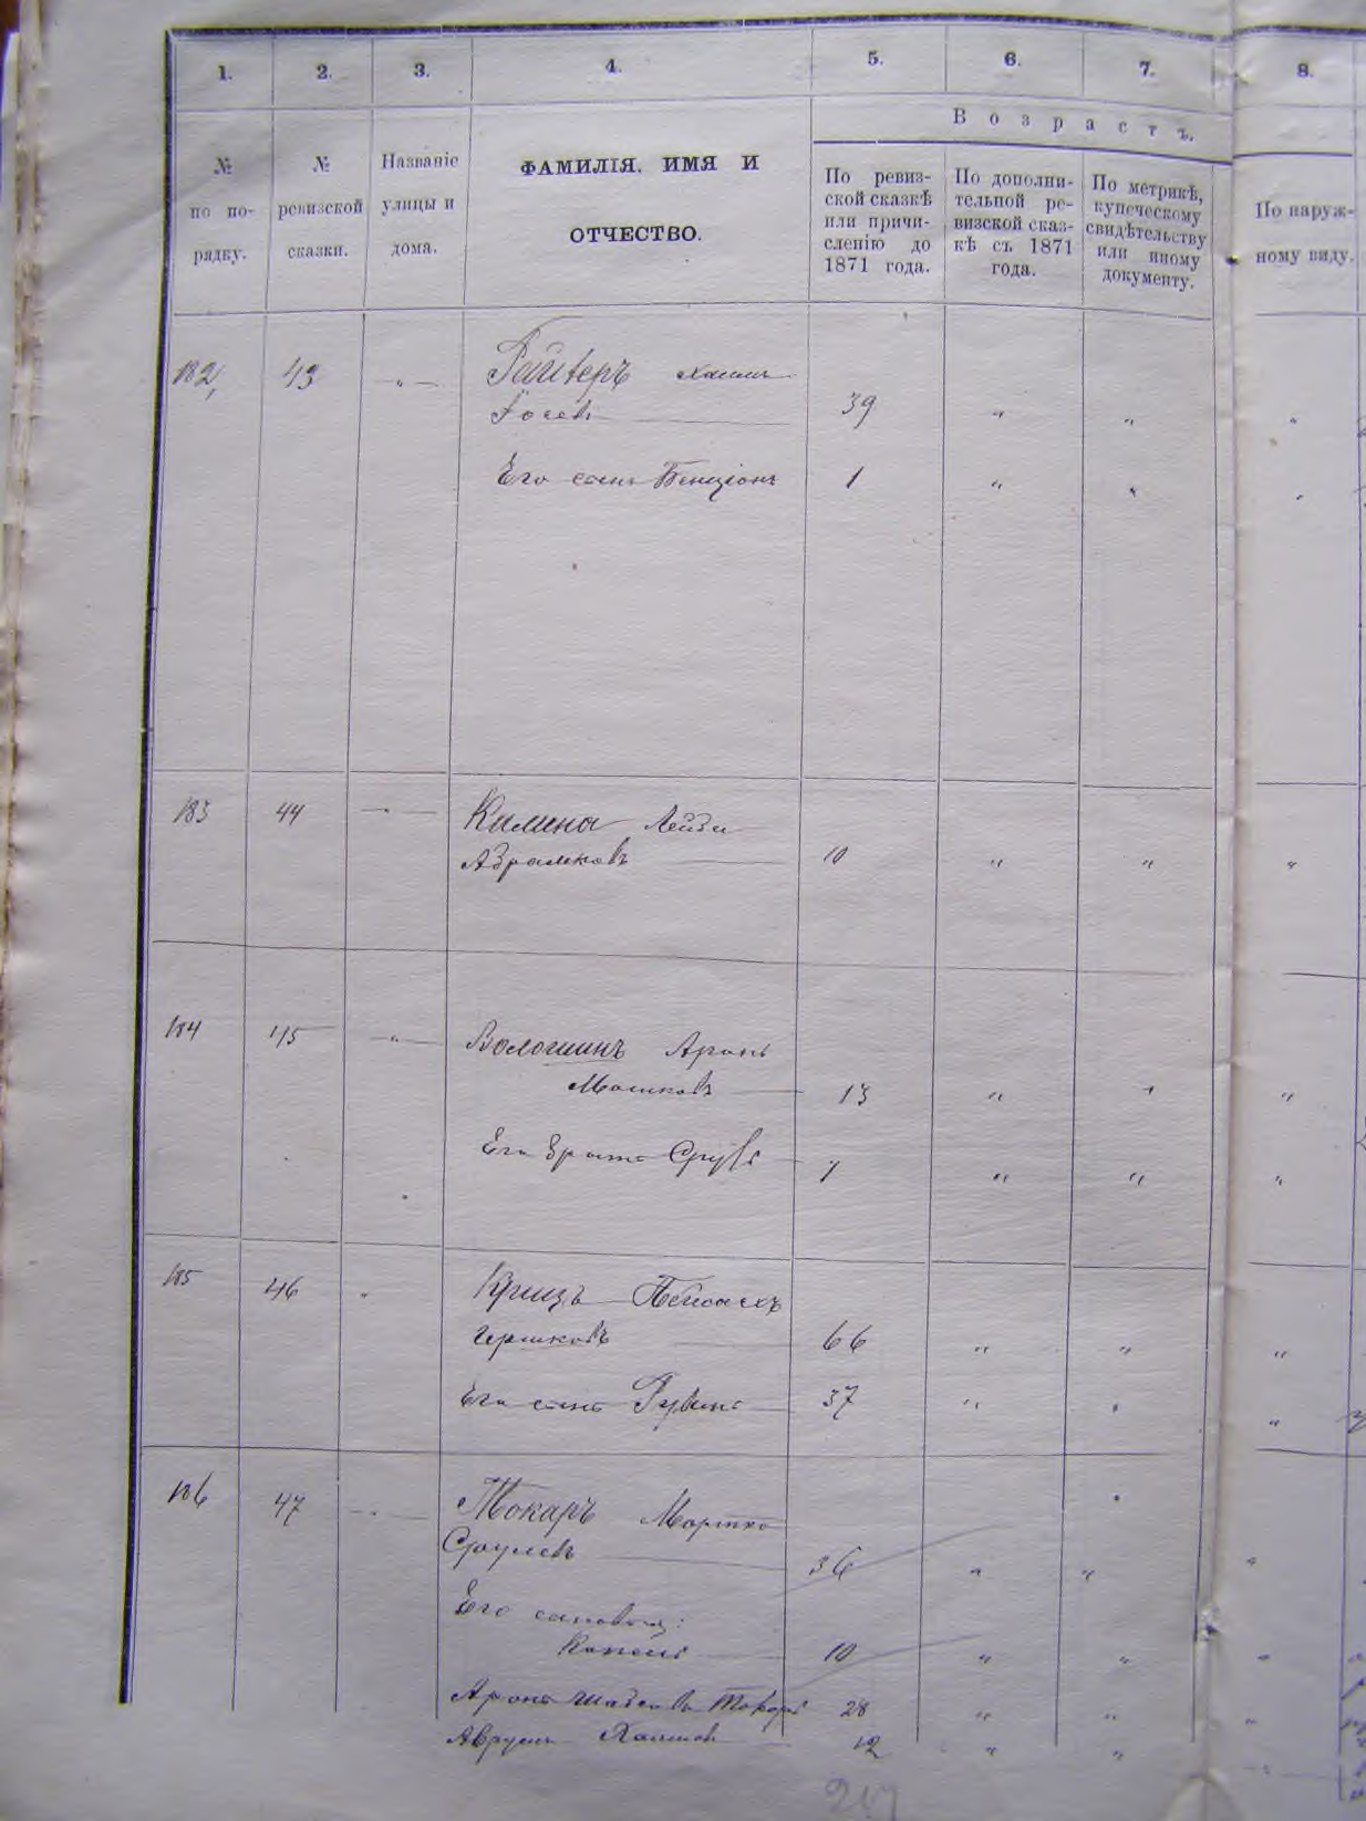 1. 2. 3. 4. 5. 6. 7. 8.
Возрастъ.
№ по по- рядку.
№ ревизской сказки.
Названіе улицы и дома.
ФАМИЛІЯ, ИМЯ И
ОТЧЕСТВО.
По ревиз-
ской сказкѣ
или причи-
сленію до
1871 года.
По дополни-
тельной ре-
визской сказ-
кѣ съ 1871
года.
По метрикѣ,
купеческому
свидѣтельству
или иному
документу.
По наруж-
ному виду.
182 43 " Рейтеръ Хаимъ
Іосевъ 39 " " "
Его сынъ Бенціонъ 1 " " "
183 44 " Калина Лейзи
Абрамковъ 10 " " "
184 45 " Волошинъ Аронъ
Мошковъ 13 " " "
Его братъ Сруль 7 " " "
185 46 " Пейсахъ
Гершковъ 66 " " "
Его сынъ Рувинъ 37 " " "
186 47 " Токаръ Мортко
Сруlевъ 36 " " "
Его сыновья:
Копель 10 " " "
Аронъ Токаръ 28 " " "
Аврумъ Хаимовъ 12 " "